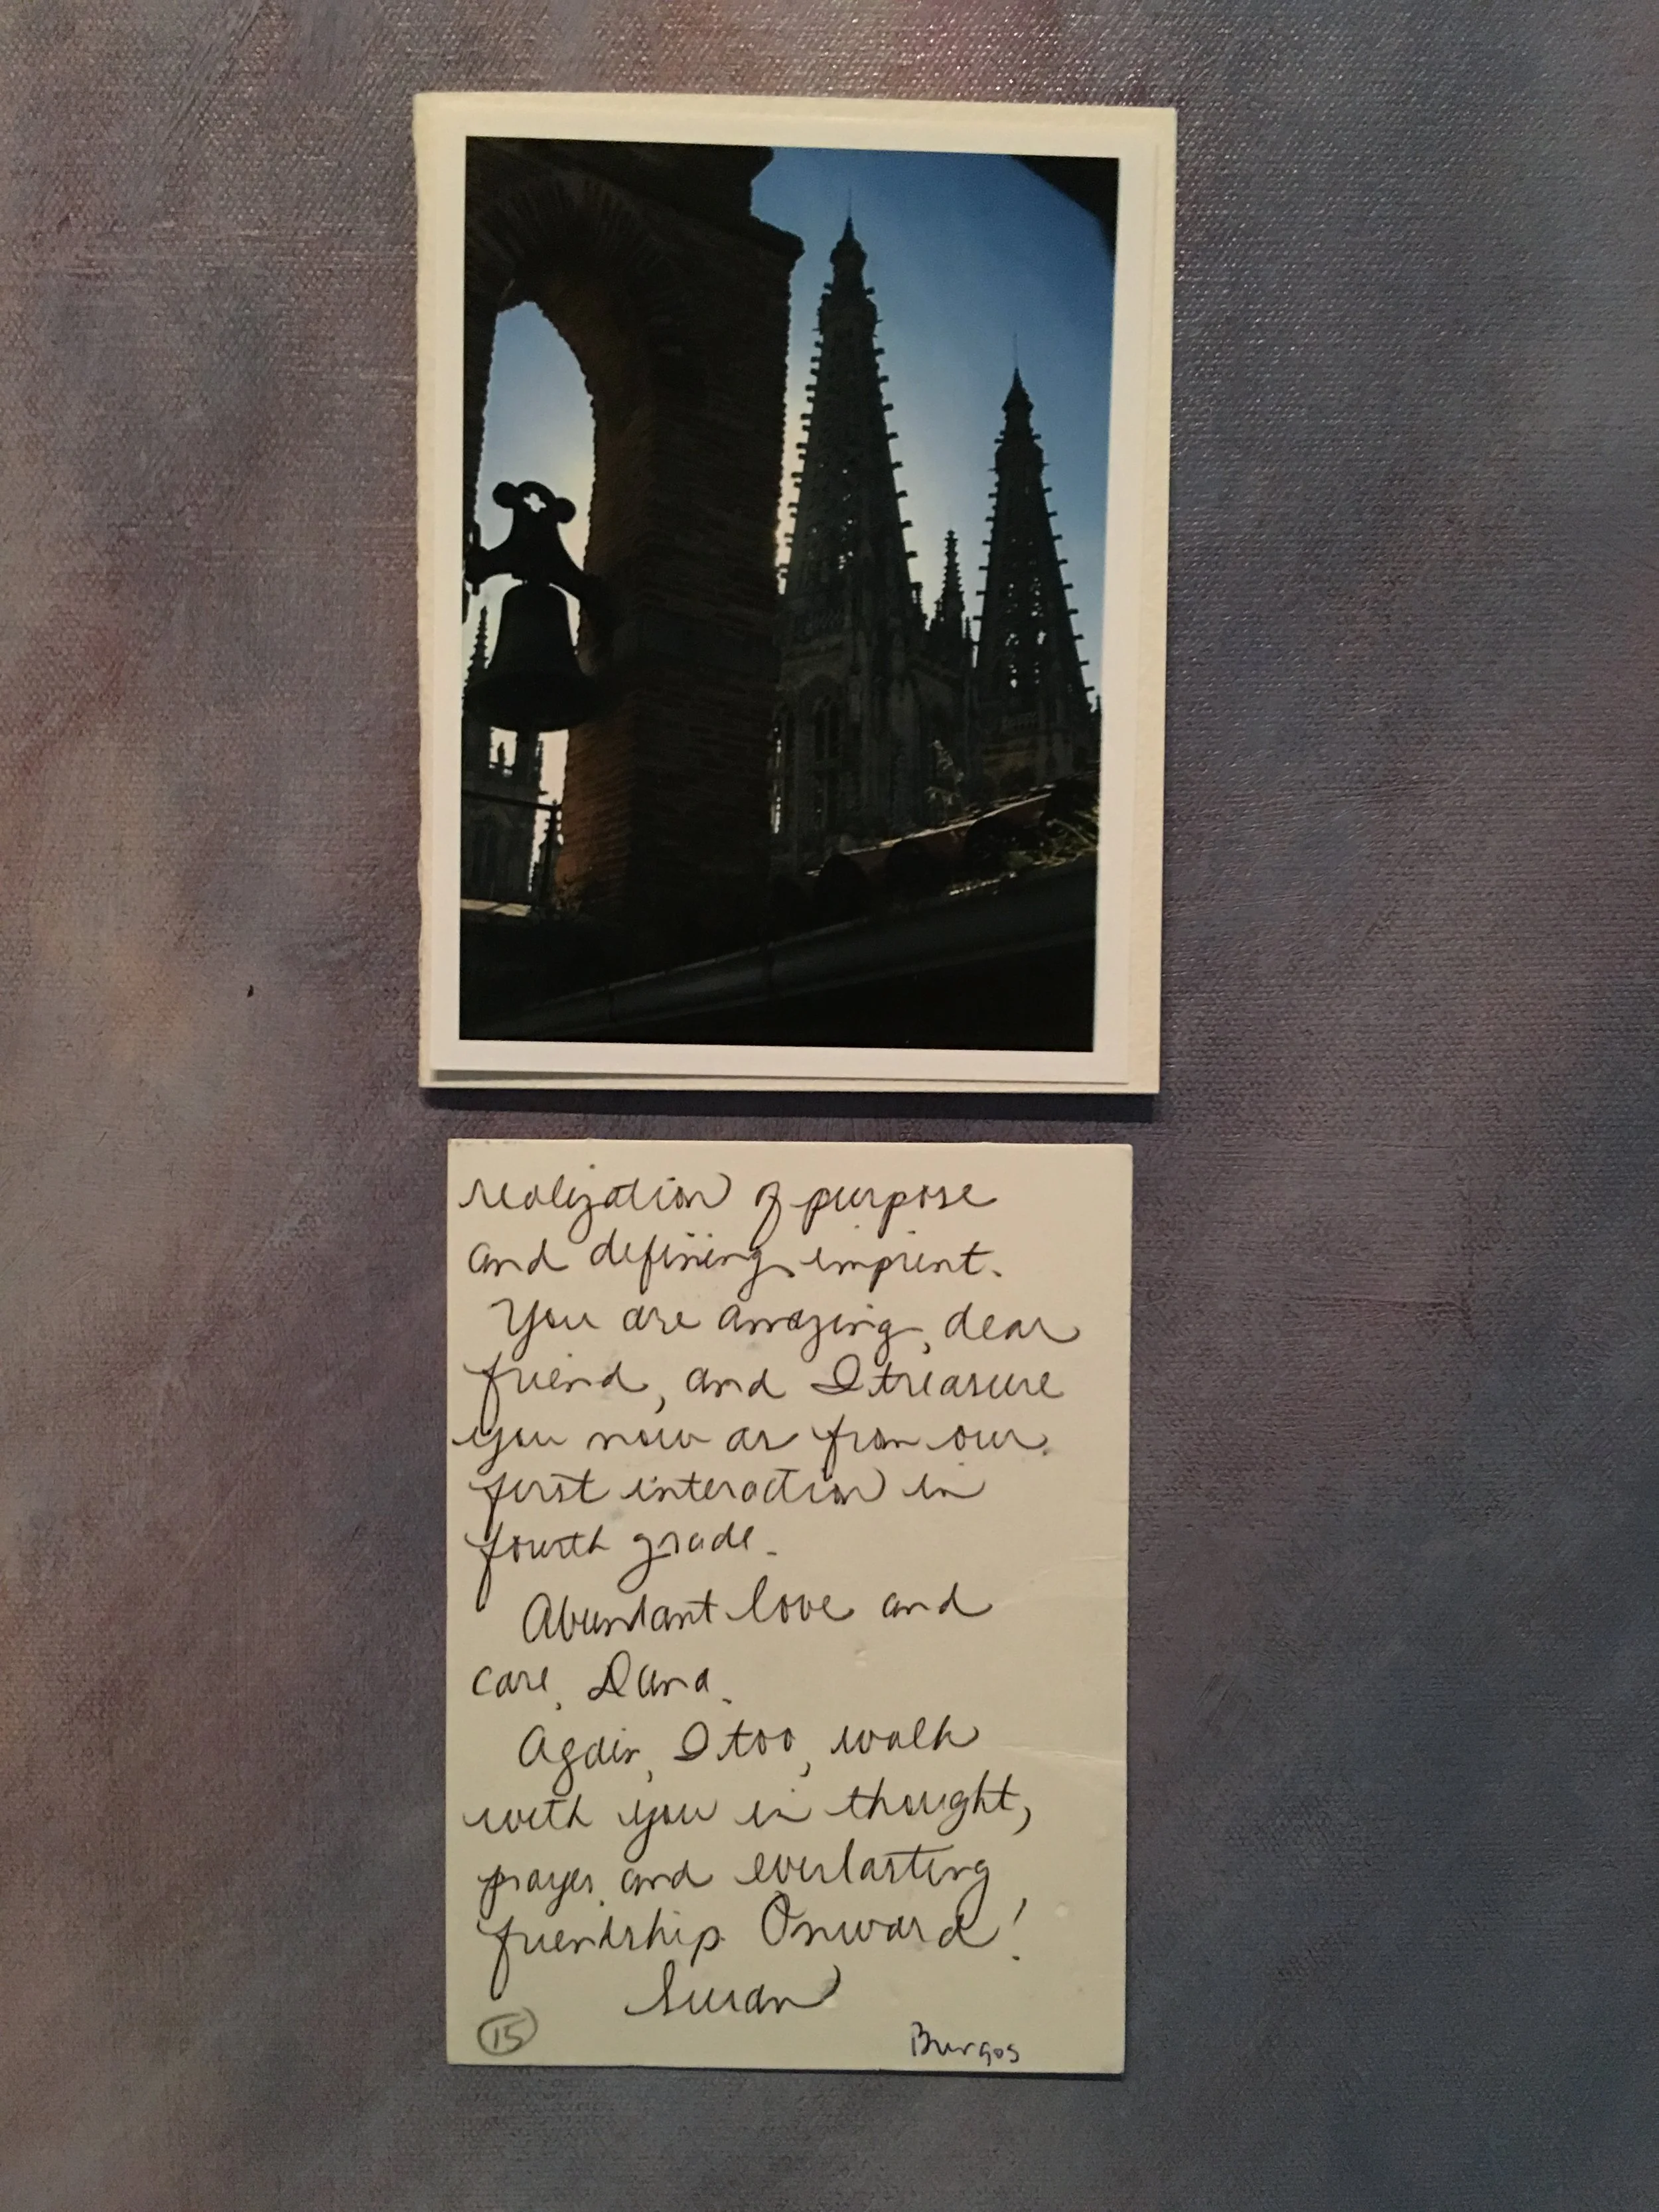 realization of purpose
and defining imprint.
You are amazing, dear
friend, and I treasure
you now as from our
first interaction in
fourth grade.
Abundant love and
care, Dana.
Again, I too, walk
with you in thought,
prayer and everlasting
friendship. Onward!
Susan
15
Burgos